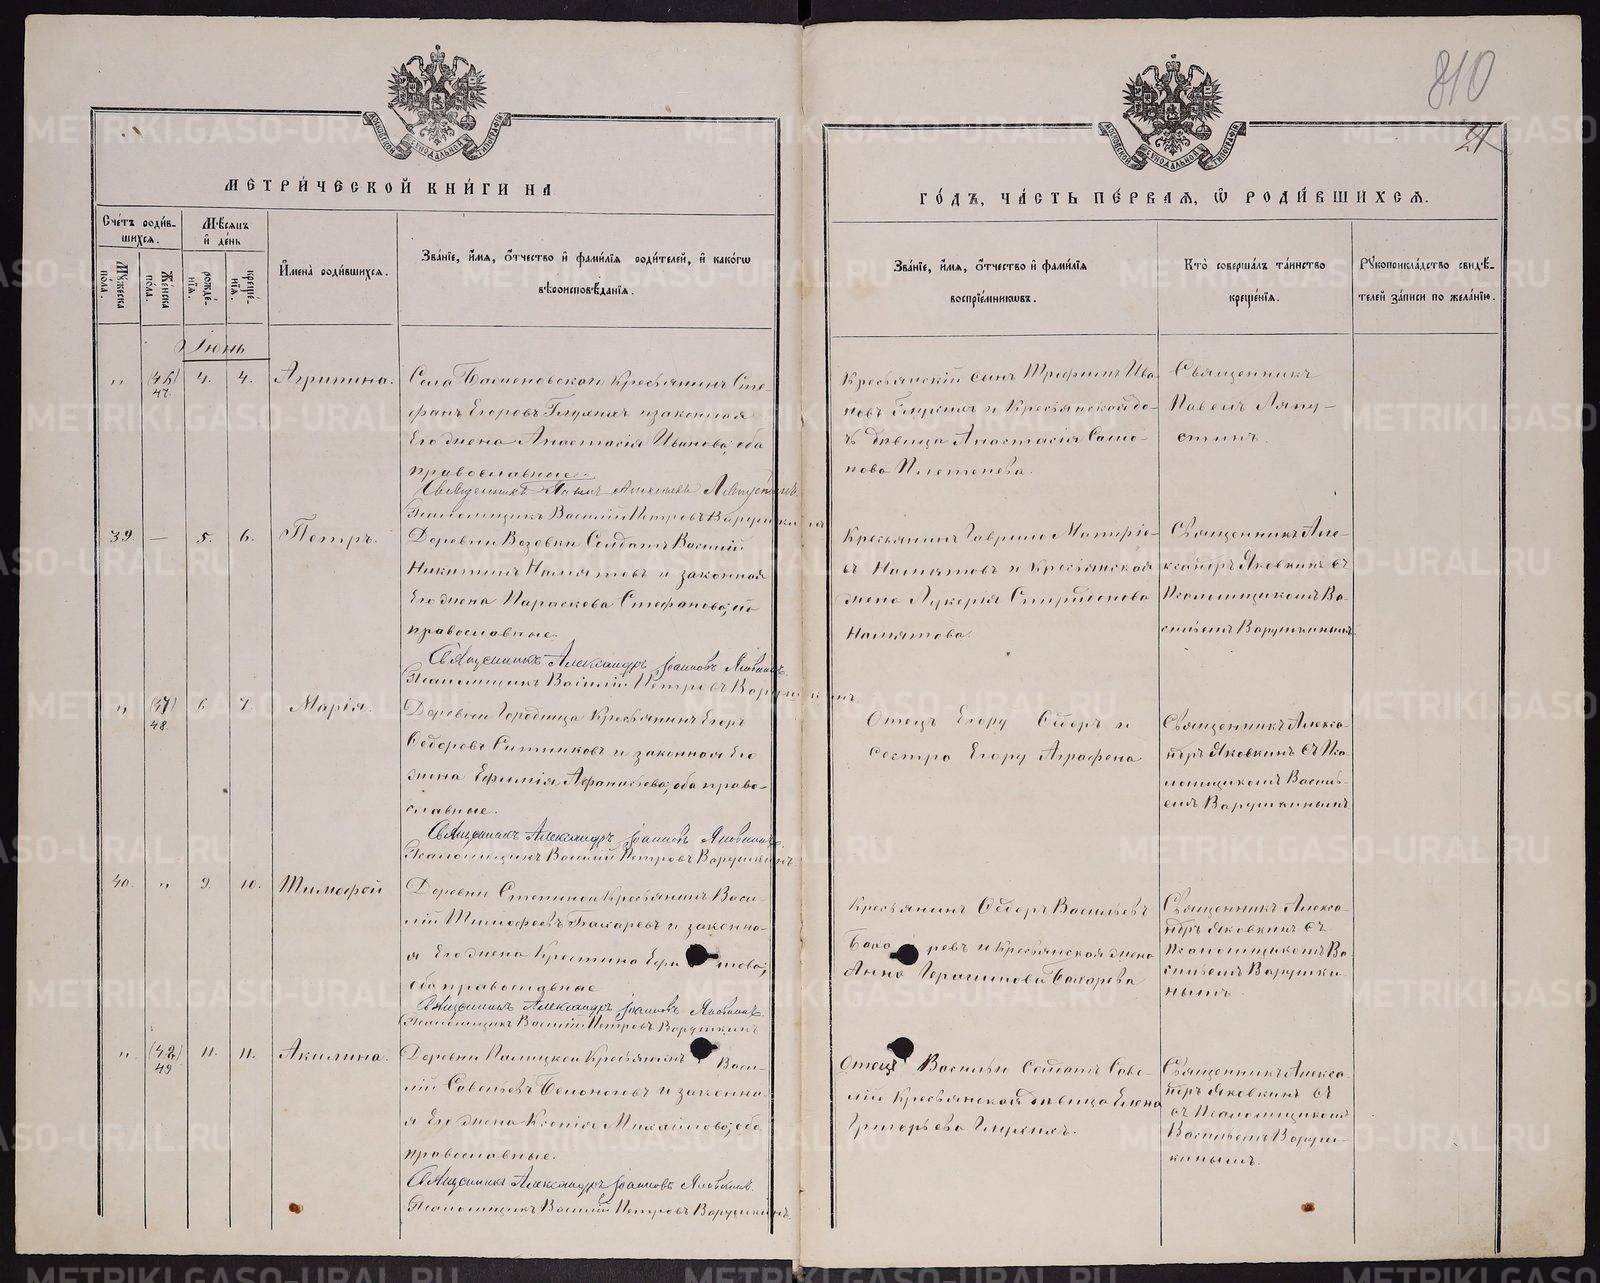 810
21
МОСКОВСКОЙ СѴНОДАЛЬНОЙ ТИПОГРАФІИ
МОСКОВСКОЙ СѴНОДАЛЬНОЙ ТИПОГРАФІИ
МЕТРИ́ЧЕСКОЙ КНИ́ГИ НА
ГО́ДЪ, ЧА́СТЬ ПЕ́РВАЯ, Ѡ҆ РОДИ́ВШИХСЯ.
Сче́тъ роди́в-
шихся.
Мѣ́сяцъ
и҆ де́нь
Мꙋ́жеска
по́ла.
Же́нска
по́ла.
рожде́-
нїя.
креще́-
нїя.
И҆мена̀ роди́вшихся.
Зва́нїе, и҆́мя, ѻ҆́тчество и҆ фами́лїя роди́телей, и҆ како́гѡ
вѣроисповѣ́данїя.
Зва́нїе, и҆́мя, ѻ҆́тчество и҆ фами́лїя
воспрїе́мникѡвъ.
Кто̀ соверша́лъ та́инство
креще́нїя.
Рꙋкоприкла́дство свидѣ́-
телей за́писи по жела́нїю.
Іюнь
„ (46) 4. 4. Агрипина.
47
Села Крестьянинъ Сте-
фанъ Егоровъ Глухихъ и законная
Его жена Анастасія Иванова, оба
православные.
Священникъ Павелъ Ляпустинъ
Псаломщикъ Василій Петровъ Варушкинъ
Крестьянскій сынъ Трифонъ Ива-
новъ Глухихъ и Крестьянская до-
чь дѣвица Анастасія
Плетенева.
Священникъ
Павелъ Ляпу-
стинъ.
39. — 5. 6. Петръ.
Деревни Солдатъ Василій
Никитинъ и законная
Его жена Параскева Стефанова, оба
православные.
Священникъ Александръ Іоанновъ Яковкинъ
Псаломщикъ Василій Петровъ Варушкинъ
Крестьянинъ Гаврило
и Крестьянская
жена Лукерья Спиридонова
Священникъ Але-
ксандръ Яковкинъ съ
Псаломщикомъ Ва-
сильемъ Варушкинымъ
„ (47) 6. 7. Марія.
48.
Деревни Городища Крестьянинъ Егоръ
Ѳедоровъ Ситниковъ и законная Его
жена Ефимія Афанасьева, оба право-
славные.
Священникъ Александръ Іоанновъ Яковкинъ
Псаломщикъ Василій Петровъ Варушкинъ
Отецъ Егору Ѳедоръ и
сестра Егору Аграфена
Священникъ Алекса-
ндръ Яковкинъ съ Пса-
ломщикомъ Василь-
емъ Варушкинымъ
40. „ 9. 10. Тимофей
Деревни Степиной Крестьянинъ Васи-
лій Тимофеевъ Бахаревъ и законна-
я Его жена Крестина
оба православные
Священникъ Александръ Іоанновъ Яковкинъ
Псаломщикъ Василій Петровъ Варушкинъ
Крестьянинъ Ѳедоръ Васильевъ
Бахаревъ и Крестьянская жена
Анна Герасимова Бахарева
Священникъ Алекса-
ндръ Яковкинъ съ
Псаломщикомъ Ва-
сильемъ Варушки-
нымъ
„ (48) 11. 11. Акилина.
49
Деревни Палицкой Крестьянинъ Васи-
лій Савельевъ Белоноговъ и законна-
я Его жена Ксенія Михайлова, оба
православные.
Священникъ Александръ Іоанновъ Яковкинъ
Псаломщикъ Василій Петровъ Варушкинъ
Отецъ Василью Солдатъ Саве-
лій Крестьянская дѣвица Елена
Григорьева Глухихъ.
Священникъ Алекса-
ндръ Яковкинъ съ
съ Псаломщикомъ
Васильемъ Варуш-
кинымъ.
METRIKI.GASO-URAL.RU